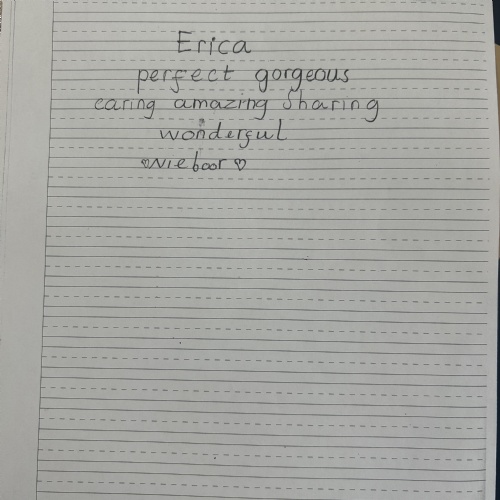 Erica
perfect gorgeous
caring amazing sharing
wonderful
♡Nieboor♡